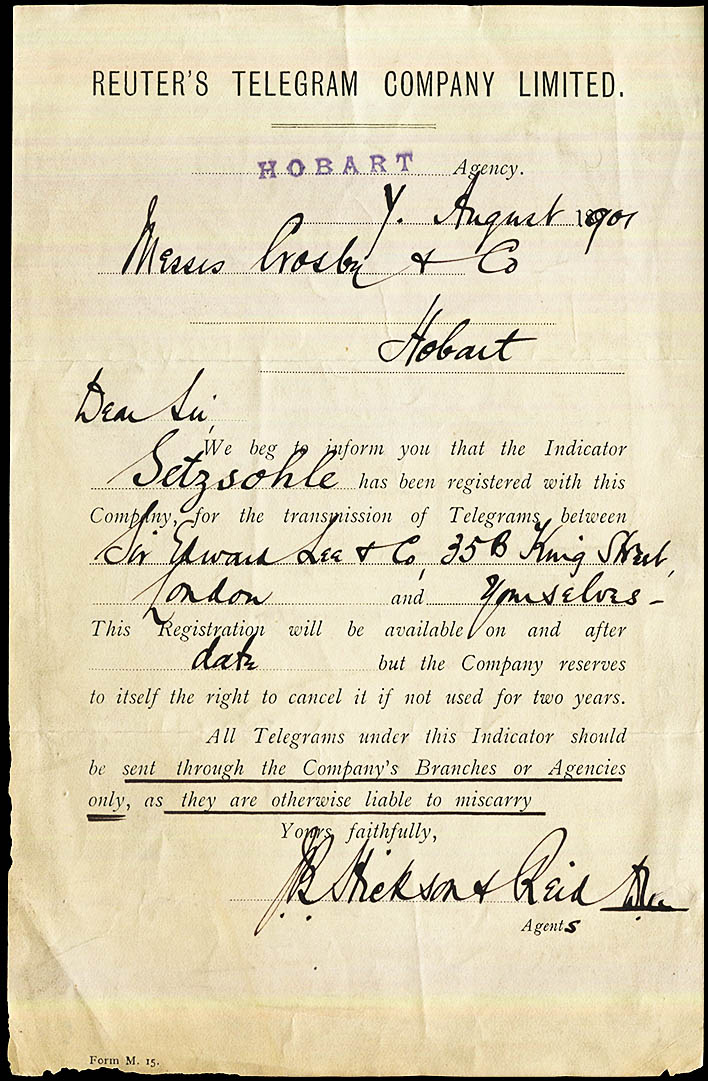 REUTER'S TELEGRAM COMPANY LIMITED.
HOBART Agency.
7. August 1901
Messrs Crosby & Co
Hobart
Dear Sir,
We beg to inform you that the Indicator
Setzsohle has been registered with this
Company, for the transmission of Telegrams between
Sir Edward Lee & Co, 35B King Street,
London and Yourselves -
This Registration will be available on and after
date but the Company reserves
to itself the right to cancel it if not used for two years.
All Telegrams under this Indicator should
be sent through the Company's Branches or Agencies
only, as they are otherwise liable to miscarry
Yours faithfully,
Hickson & Reid
Agents
Form M. 15.